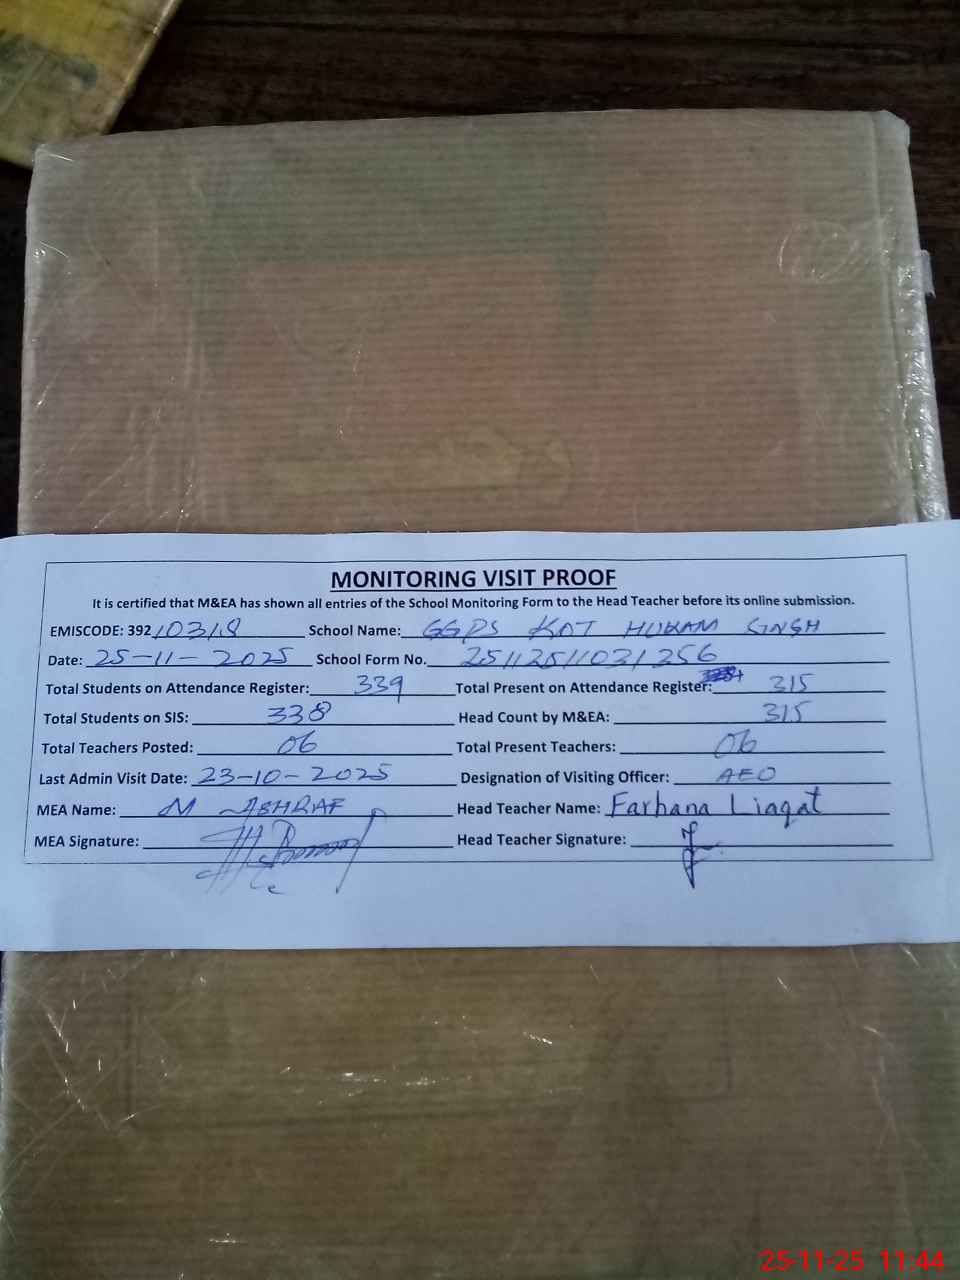 MONITORING VISIT PROOF
It is certified that M&EA has shown all entries of the School Monitoring Form to the Head Teacher before its online submission.
EMISCODE: 39210318 School Name: GGPS KOT HUKAM SINGH
Date: 25-11-2025 School Form No. 25112511031356
Total Students on Attendance Register: 339 Total Present on Attendance Register: 315
Total Students on SIS: 338 Head Count by M&EA: 315
Total Teachers Posted: 06 Total Present Teachers: 06
Last Admin Visit Date: 23-10-2025 Designation of Visiting Officer: AEO
MEA Name: M ASHRAF Head Teacher Name: Farhana Liaqat
MEA Signature: Head Teacher Signature:
25-11-25 11:44